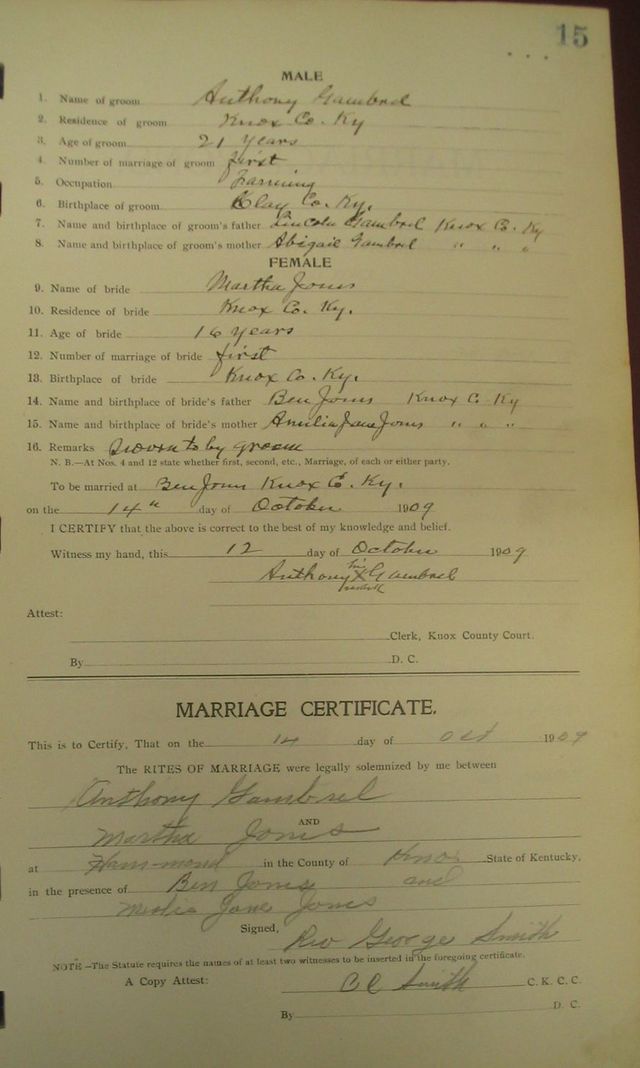 15
MALE
1. Name of groom Anthony Gambrel
2. Residence of groom Knox Co. Ky
3. Age of groom 21 years
4. Number of marriage of groom first
5. Occupation Farming
6. Birthplace of groom Clay Co. Ky.
7. Name and birthplace of groom's father Lincoln Gambrel Knox Co. Ky
8. Name and birthplace of groom's mother Abigail Gambrel " " "
FEMALE
9. Name of bride Martha Jones
10. Residence of bride Knox Co. Ky.
11. Age of bride 16 years
12. Number of marriage of bride first
13. Birthplace of bride Knox Co. Ky.
14. Name and birthplace of bride's father Ben Jones Knox C. Ky
15. Name and birthplace of bride's mother Amilia Jane Jones " " "
16. Remarks Sworn to by groom
N. B.—At Nos. 4 and 12 state whether first, second, etc., Marriage, of each or either party.
To be married at Ben Jones Knox C. Ky.
on the 14" day of October 1909
I CERTIFY that the above is correct to the best of my knowledge and belief.
Witness my hand, this 12 day of October 1909
his
Anthony X Gambrel
mark
Attest:
Clerk, Knox County Court.
By D. C.
MARRIAGE CERTIFICATE.
This is to Certify, That on the 14 day of Oct 1909
The RITES OF MARRIAGE were legally solemnized by me between
Anthony Gambrel
AND
Martha Jones
at Hammond in the County of Knox State of Kentucky,
in the presence of Ben Jones and
Jane Jones
Signed, Rev George Smith
NOTE—The Statute requires the names of at least two witnesses to be inserted in the foregoing certificate.
A Copy Attest: C C Smith C. K. C. C.
By D. C.